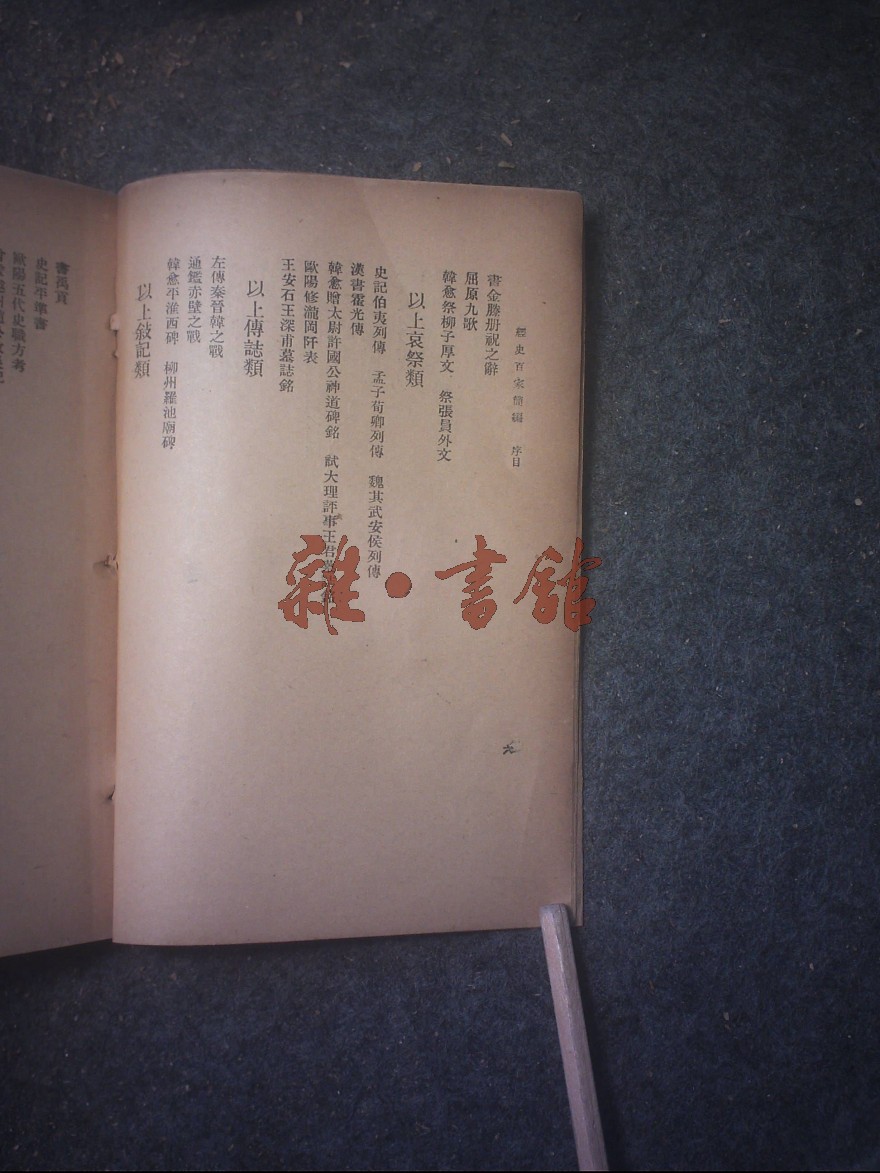 經史百家簡編 序目
書金縢册祝之辭
屈原九歌
韓愈祭柳子厚文 祭張員外文
以上哀祭類
史記伯夷列傳 孟子荀卿列傳 魏其武安侯列傳
漢書霍光傳
韓愈贈太尉許國公神道碑銘 試大理評事王君墓誌銘
歐陽修瀧岡阡表
王安石王深甫墓誌銘
以上傳誌類
左傳秦晉韓之戰
通鑑赤壁之戰
韓愈平淮西碑 柳州羅池廟碑
以上敍記類
書禹貢
史記平準書
歐陽五代史職方考
雜·書館